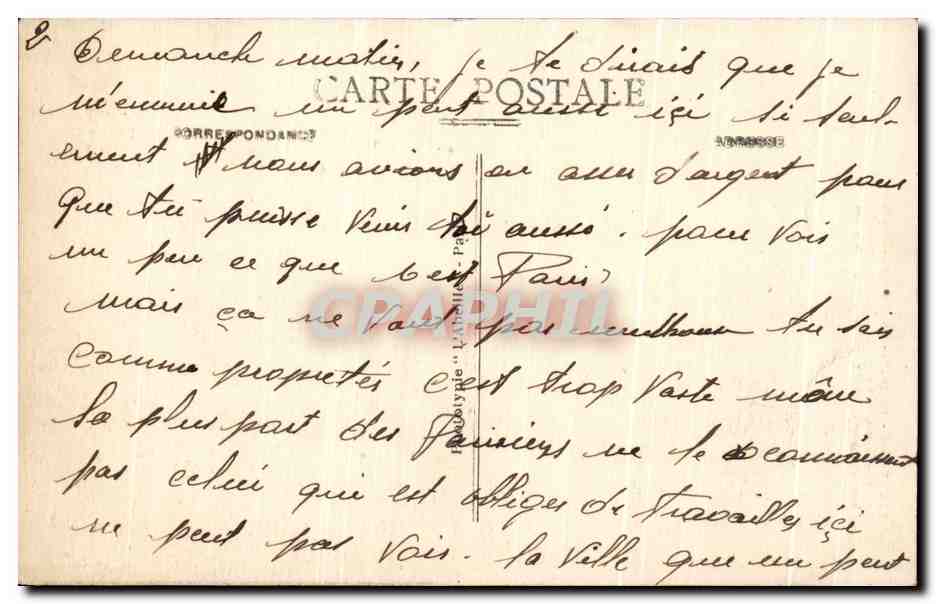 2
Demanche matin, je te dirais que je
CARTE POSTALE
m'ennuie un peut aussi içi si seul-
CORRESPONDANCE
ADRESSE
ement nous avions on asser d'argent pour
que tu puisse venir toi aussi. pour vois
un peu ce que c'est Paris
CPARAMA
mais ça ne vaut pas tu sais
comme propretés c'est trop vaste même
la plus part des Parisiens ne le connaissent
pas celui qui est obliger de travailler içi
ne peut pas vois. la ville que un peut
Phototypie "L'Abeille" - Pa